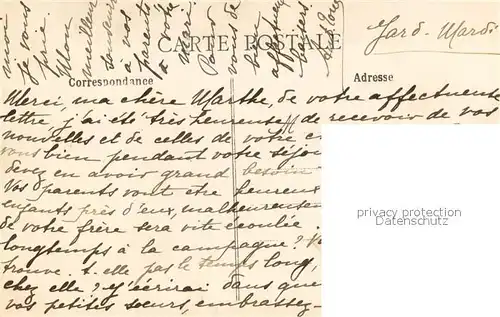 CARTE POSTALE
Correspondance
Adresse
Jard-Mardi
Merci, ma chère Marthe, de votre affectueuse
lettre j'ai été très heureuse de recevoir de vos
nouvelles et de celles de votre
vous bien pendant votre séjou
devez en avoir grand besoin
Vos parents vont être heureux
enfants près d'eux, malheureusemen
de votre frère sera vite écoulée
longtemps à la campagne?
trouve-t-elle pas le temps long,
chez elle? J'écrirai dans que
vos petites sœurs, embrassez-
moi
je vous
prie
Mon
meilleur
à vos
parents
à votre
mari
Pour
vous de
bien
affectueux
baisers
privacy protection
watermark